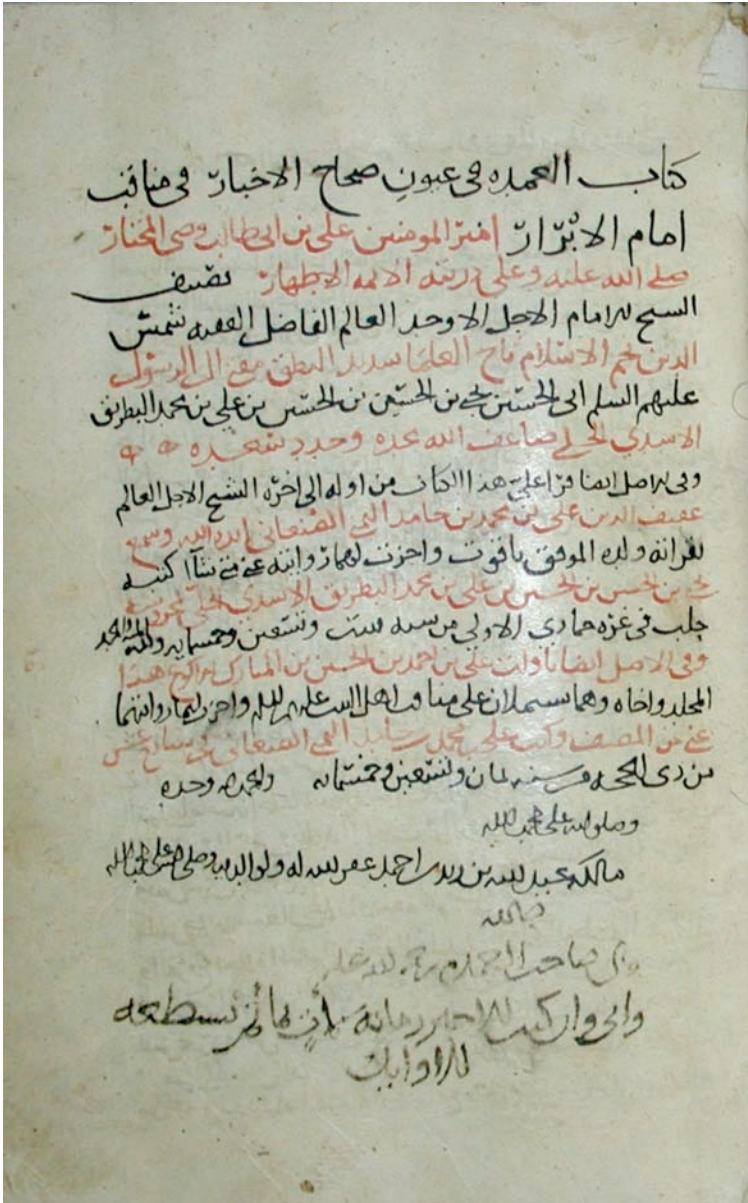 كتاب العمده في عيون صحاح الاخبار في مناقب
امام الابرار امير المومنين علي بن ابي طالب وصي المختار
صلى الله عليه وعلى ذريته الائمه الاطهار تصنيف
الشيخ الامام الاجل الاوحد العالم الفاضل الفقيه شمس
الدين نجم الاسلام تاج العلما سديد النطق مفتي ال الرسول
عليهم السلم ابي الحسين يحيى بن الحسن بن الحسين بن علي بن محمد البطريق
الاسدي الحلي ضاعف الله مجده وجدد سعده
وفي الاصل ايضا قرا علي هذا الكتاب من اوله الى اخره الشيخ الاجل العالم
عفيف الدين علي بن محمد بن حامد اليمني الصنعاني ايده الله وسمع
بقراته ولده الموفق ياقوت واجزت لهما روايته عني متى شاآ كتبه
يحيى بن الحسن بن الحسين بن علي بن محمد البطريق الاسدي الحلي بمحروسة
حلب في غزه جمادي الاولى من سنه ست وتسعين وخمسمايه ولله الحمد
وفي الاصل ايضا ناولت علي بن احمد بن الحسين بن المبارك هذا
المجلد واخاه وهما يشتملان على مناقب اهل البيت عليهم واجزت لهما روايتهما
عني عن المصنف وكتب علي بن محمد بن حامد اليمني الصنعاني في سابع عشر
من ذي الحجه من سنه ثمان وتسعين وخمسمائه والحمد لله وحده
وصلواته على محمد واله
مالكه عبد الله بن زيد بن احمد غفر الله له ولوالديه وصلى الله على محمد واله
واني وان كنت الاخير زمانه لات بما لم تسطعه
الاوايل